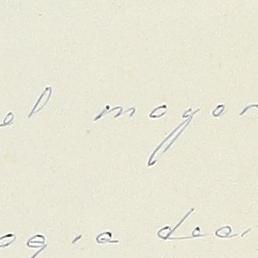 el mayor
ogia dea